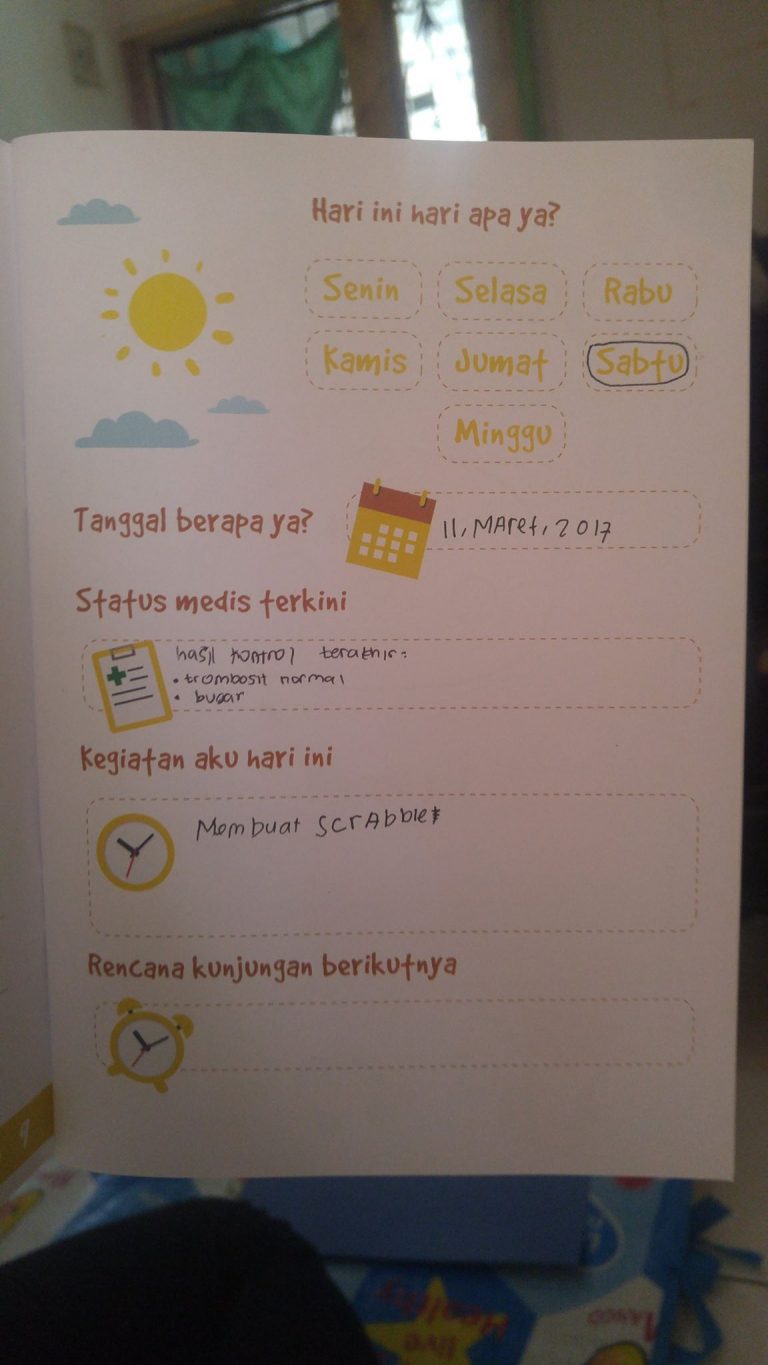 Hari ini hari apa ya?
Senin Selasa Rabu
Kamis Jumat Sabtu
Minggu
Tanggal berapa ya? 11, MAret, 2017
Status medis terkini
hasil kontrol terakhir:
• trombosit normal
• bugar
Kegiatan aku hari ini
Membuat SCrAbble
Rencana kunjungan berikutnya
9
live
Healthy